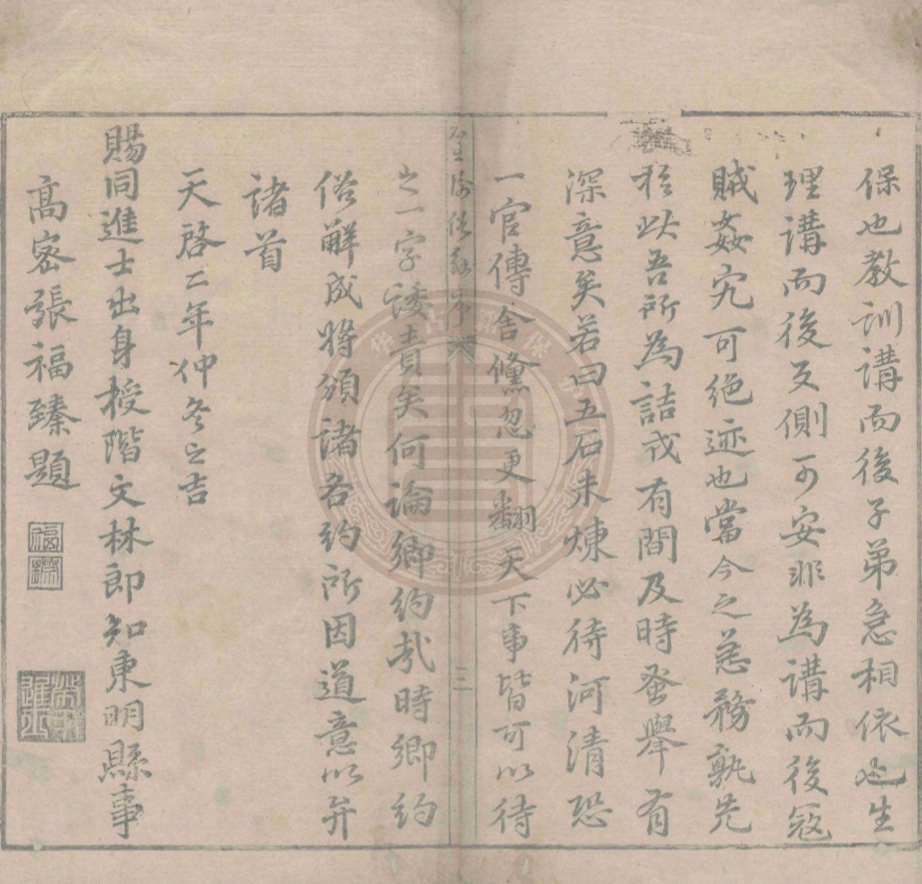 保也教訓講而後子弟急相依也生
理講而後反側可安非為講而後冦
賊姦宄可絕迹也當今之急務孰先
於此吾所為詰戎有間及時蚤舉有
深意矣若曰五石未煉必待河清恐
一官傳舍儵忽更翻天下事皆可以待
之一字諉責矣何論鄉約哉時鄉約
俗解成將頒諸各約所因道意以弁
諸首
天啓二年仲冬之吉
賜同進士出身授階文林郎知東明縣事
高密張福臻題
福臻